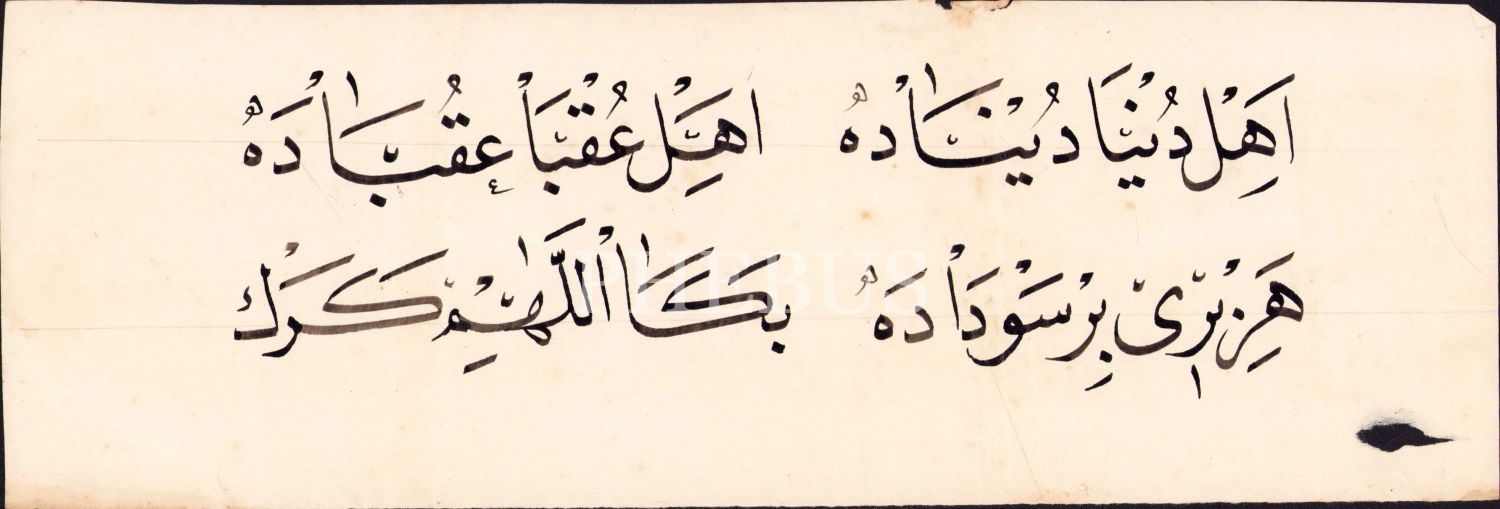 اَهْلِ دُنْيَا دُنْيَادَه اَهْلِ عُقْبَا عُقْبَادَه
هَرْ بِرِى بِرْ سَوْدَادَه بَكَا اللّٰهِمْ كَرَكْ
PHEBUS